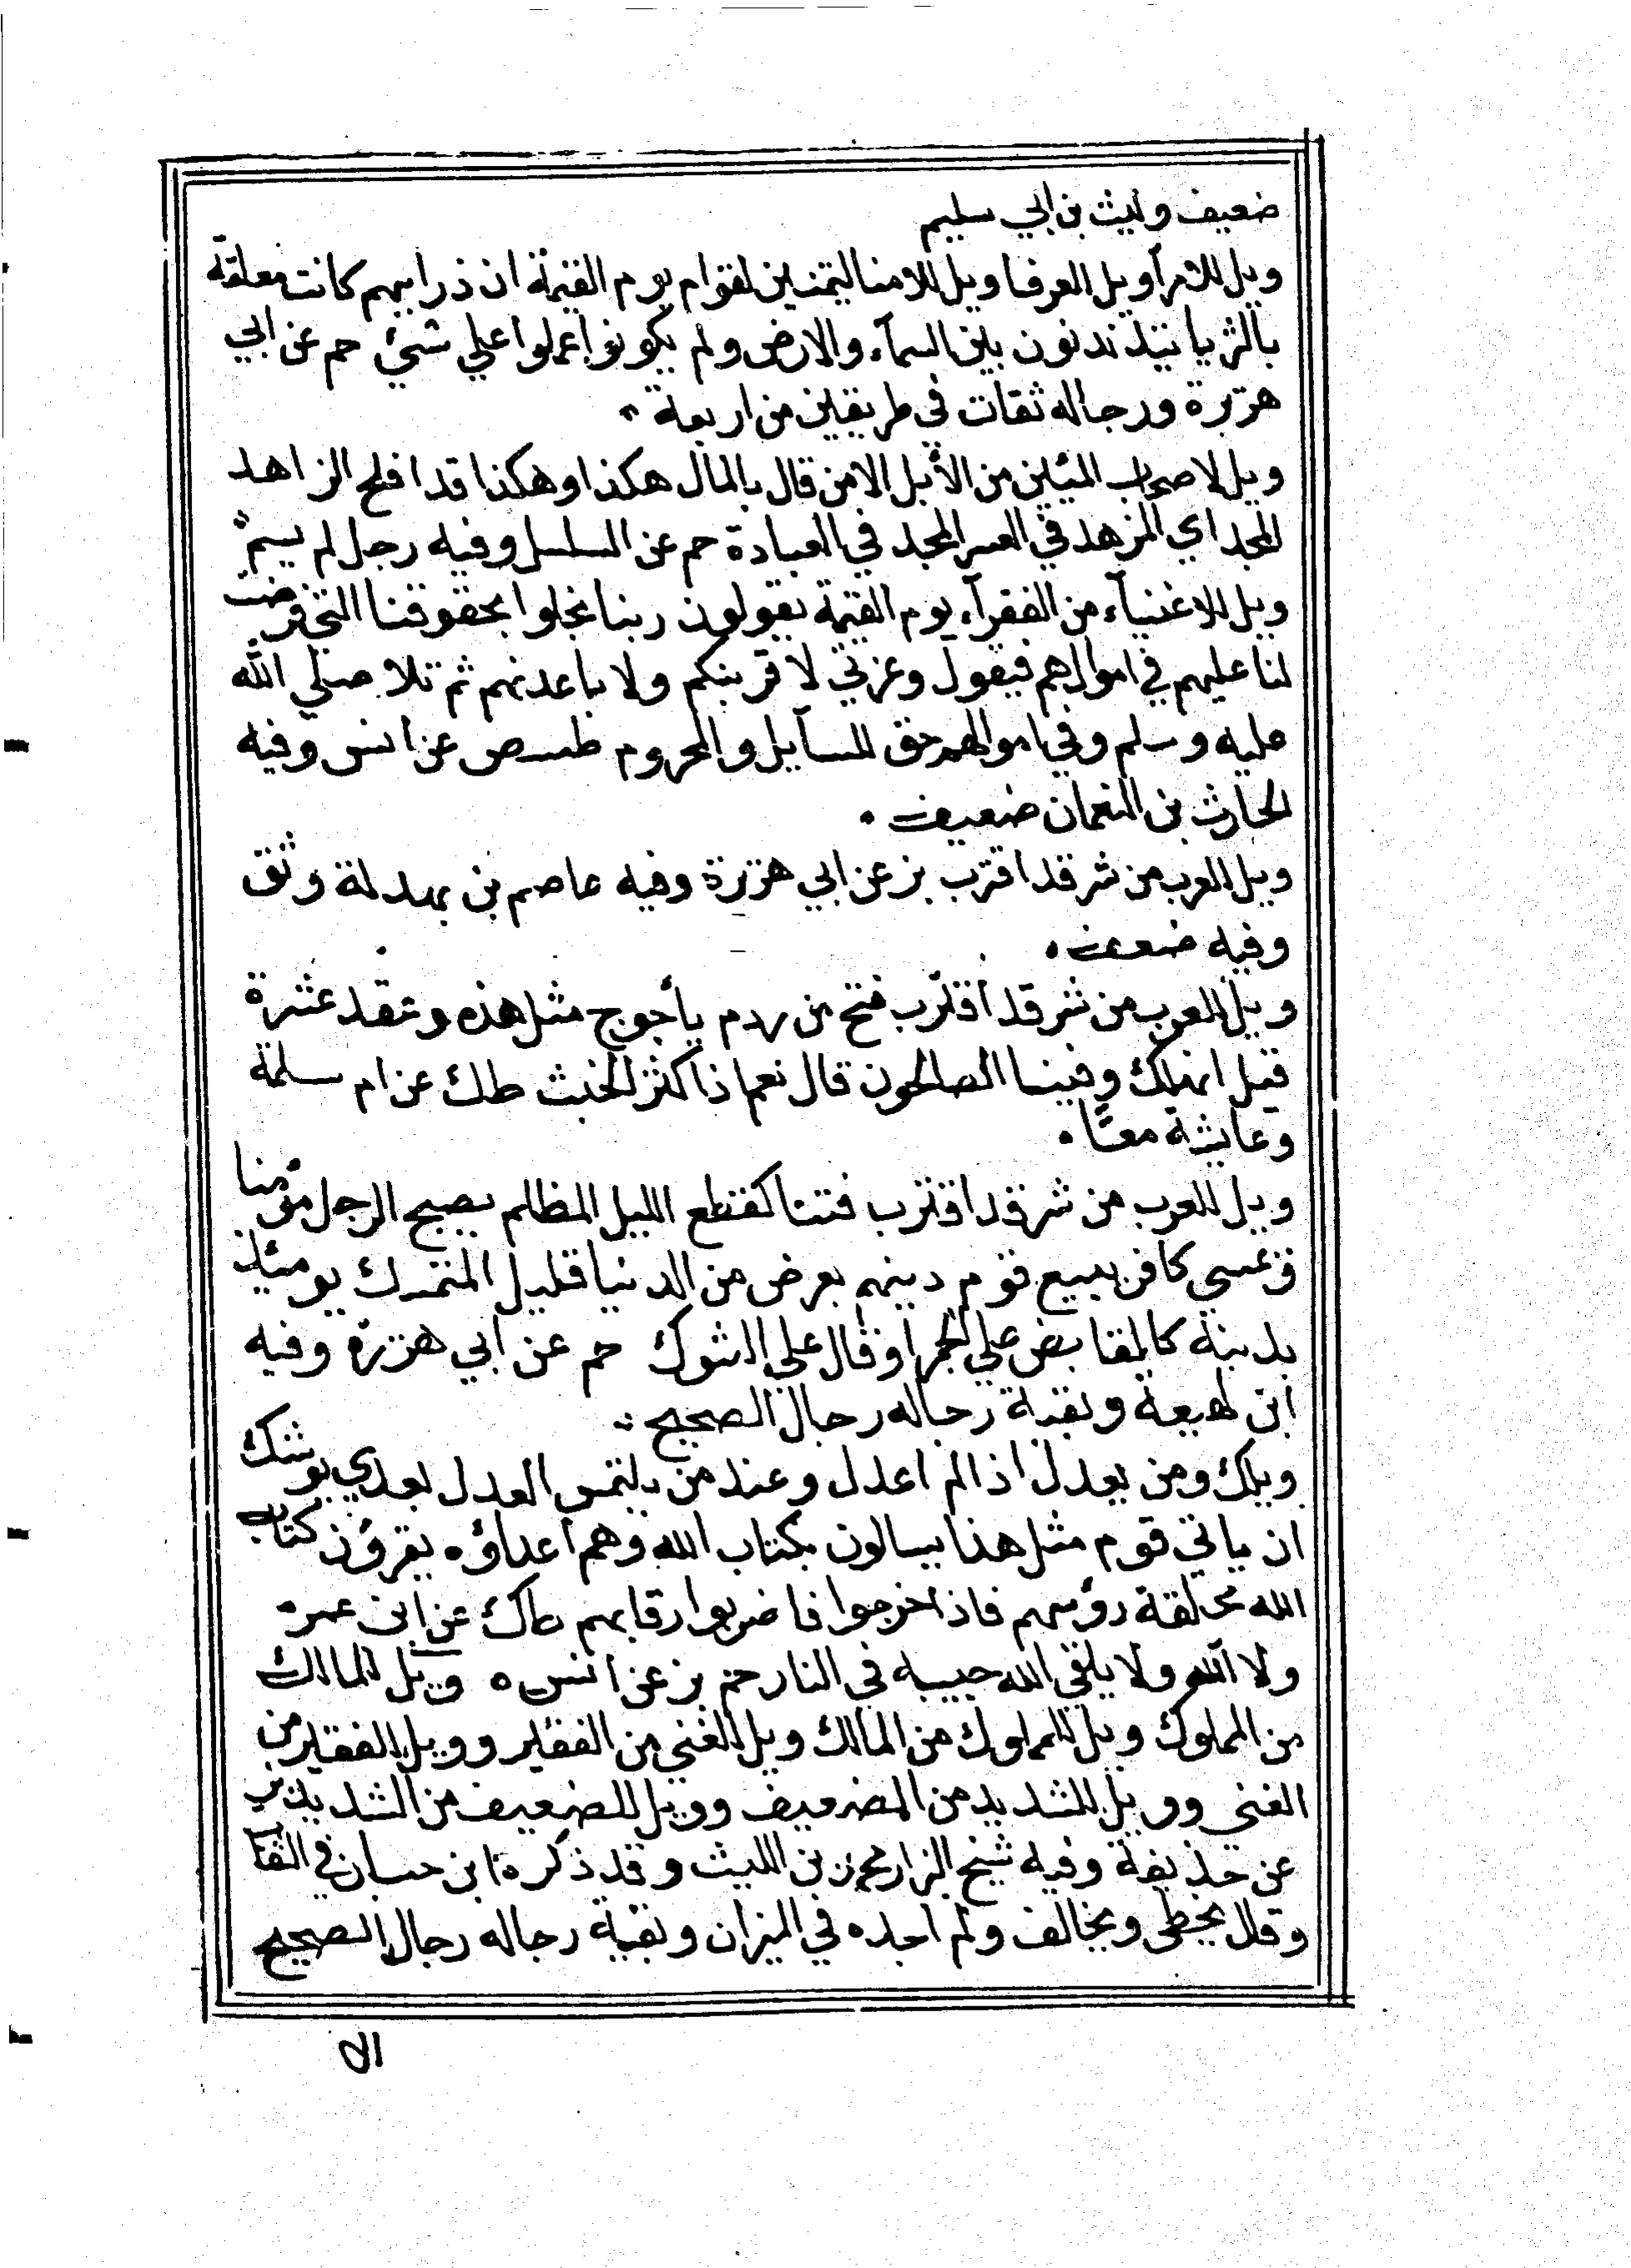 ضعيف وليث بن ابي سليم
ويل للامرآ ويل للعرفا ويل للامنا ليتمنين لقوام يوم القيمة ان ذرابيهم كانت معلقة
بالثريا يتذبذبون بين السمآء والارض ولم يكونوا عملوا علي شئ حم عن ابي
هريرة ورجاله ثقات في طريقين من اربعة
ويل لاصحاب المئين من الأبل الا من قال بالمال هكذا وهكذا قد افلح الزاهد
المجد اي المزهد في العسر المجد في العبادة حم عن السلسل وفيه رجل لم يسم
ويل للاغنيآء من الفقرآء يوم القيمة يقولون ربنا بخلوا بحقوقنا التي فرضت
لنا عليهم في اموالهم فيقول وعزتي لا قربنكم ولا باعدنهم ثم تلا صلي الله
عليه وسلم وفي اموالهم حق للسآيل والمحروم طسص عن انس وفيه
الحارث بن النعمان ضعيف
ويل للعرب من شر قد اقترب بز عن ابي هريرة وفيه عاصم بن بهدلة وثق
وفيه ضعف
ويل للعرب من شر قد اقترب فتح من ردم يأجوج مثل هذه وعقد عشرة
قيل انهلك وفينا الصالحون قال نعم اذا كثر الخبث طك عن ام سلمة
وعايشة معًا
ويل للعرب من شر قد اقترب فتنا كقطع الليل المظلم يصبح الرجل مؤمنا
ويمسي كافر يبيع قوم دينهم بعرض من الدنيا قليل المتمسك يومئذ
بدينه كالقابض علي الجمر او قال علي الشوك حم عن ابي هريرة وفيه
ابن لهيعة وبقية رجاله رجال الصحيح
ويلك ومن يعدل اذا لم اعدل وعند من يلتمس العدل بعدي يوشك
ان ياتي قوم مثل هذا يسالون بكتاب الله وهم أعداؤه يقرؤن كتاب
الله محلقة رؤسهم فاذا خرجوا فاضربوا رقابهم طك عن ابن عمر
ولا الله ولا يلقي الله حبيبه في النار حم بز عن انس ويل للمالك
من المملوك ويل للمملوك من المالك ويل للغني من الفقير وويل للفقير من
الغني وويل للشديد من الضعيف وويل للضعيف من الشديد بز
عن حذيفة وفيه شيخ البزار محمد بن الليث وقد ذكره ابن حبان في الثقا
وقال يخطي ويخالف ولم اجده في الميزان وبقية رجاله رجال الصحيح